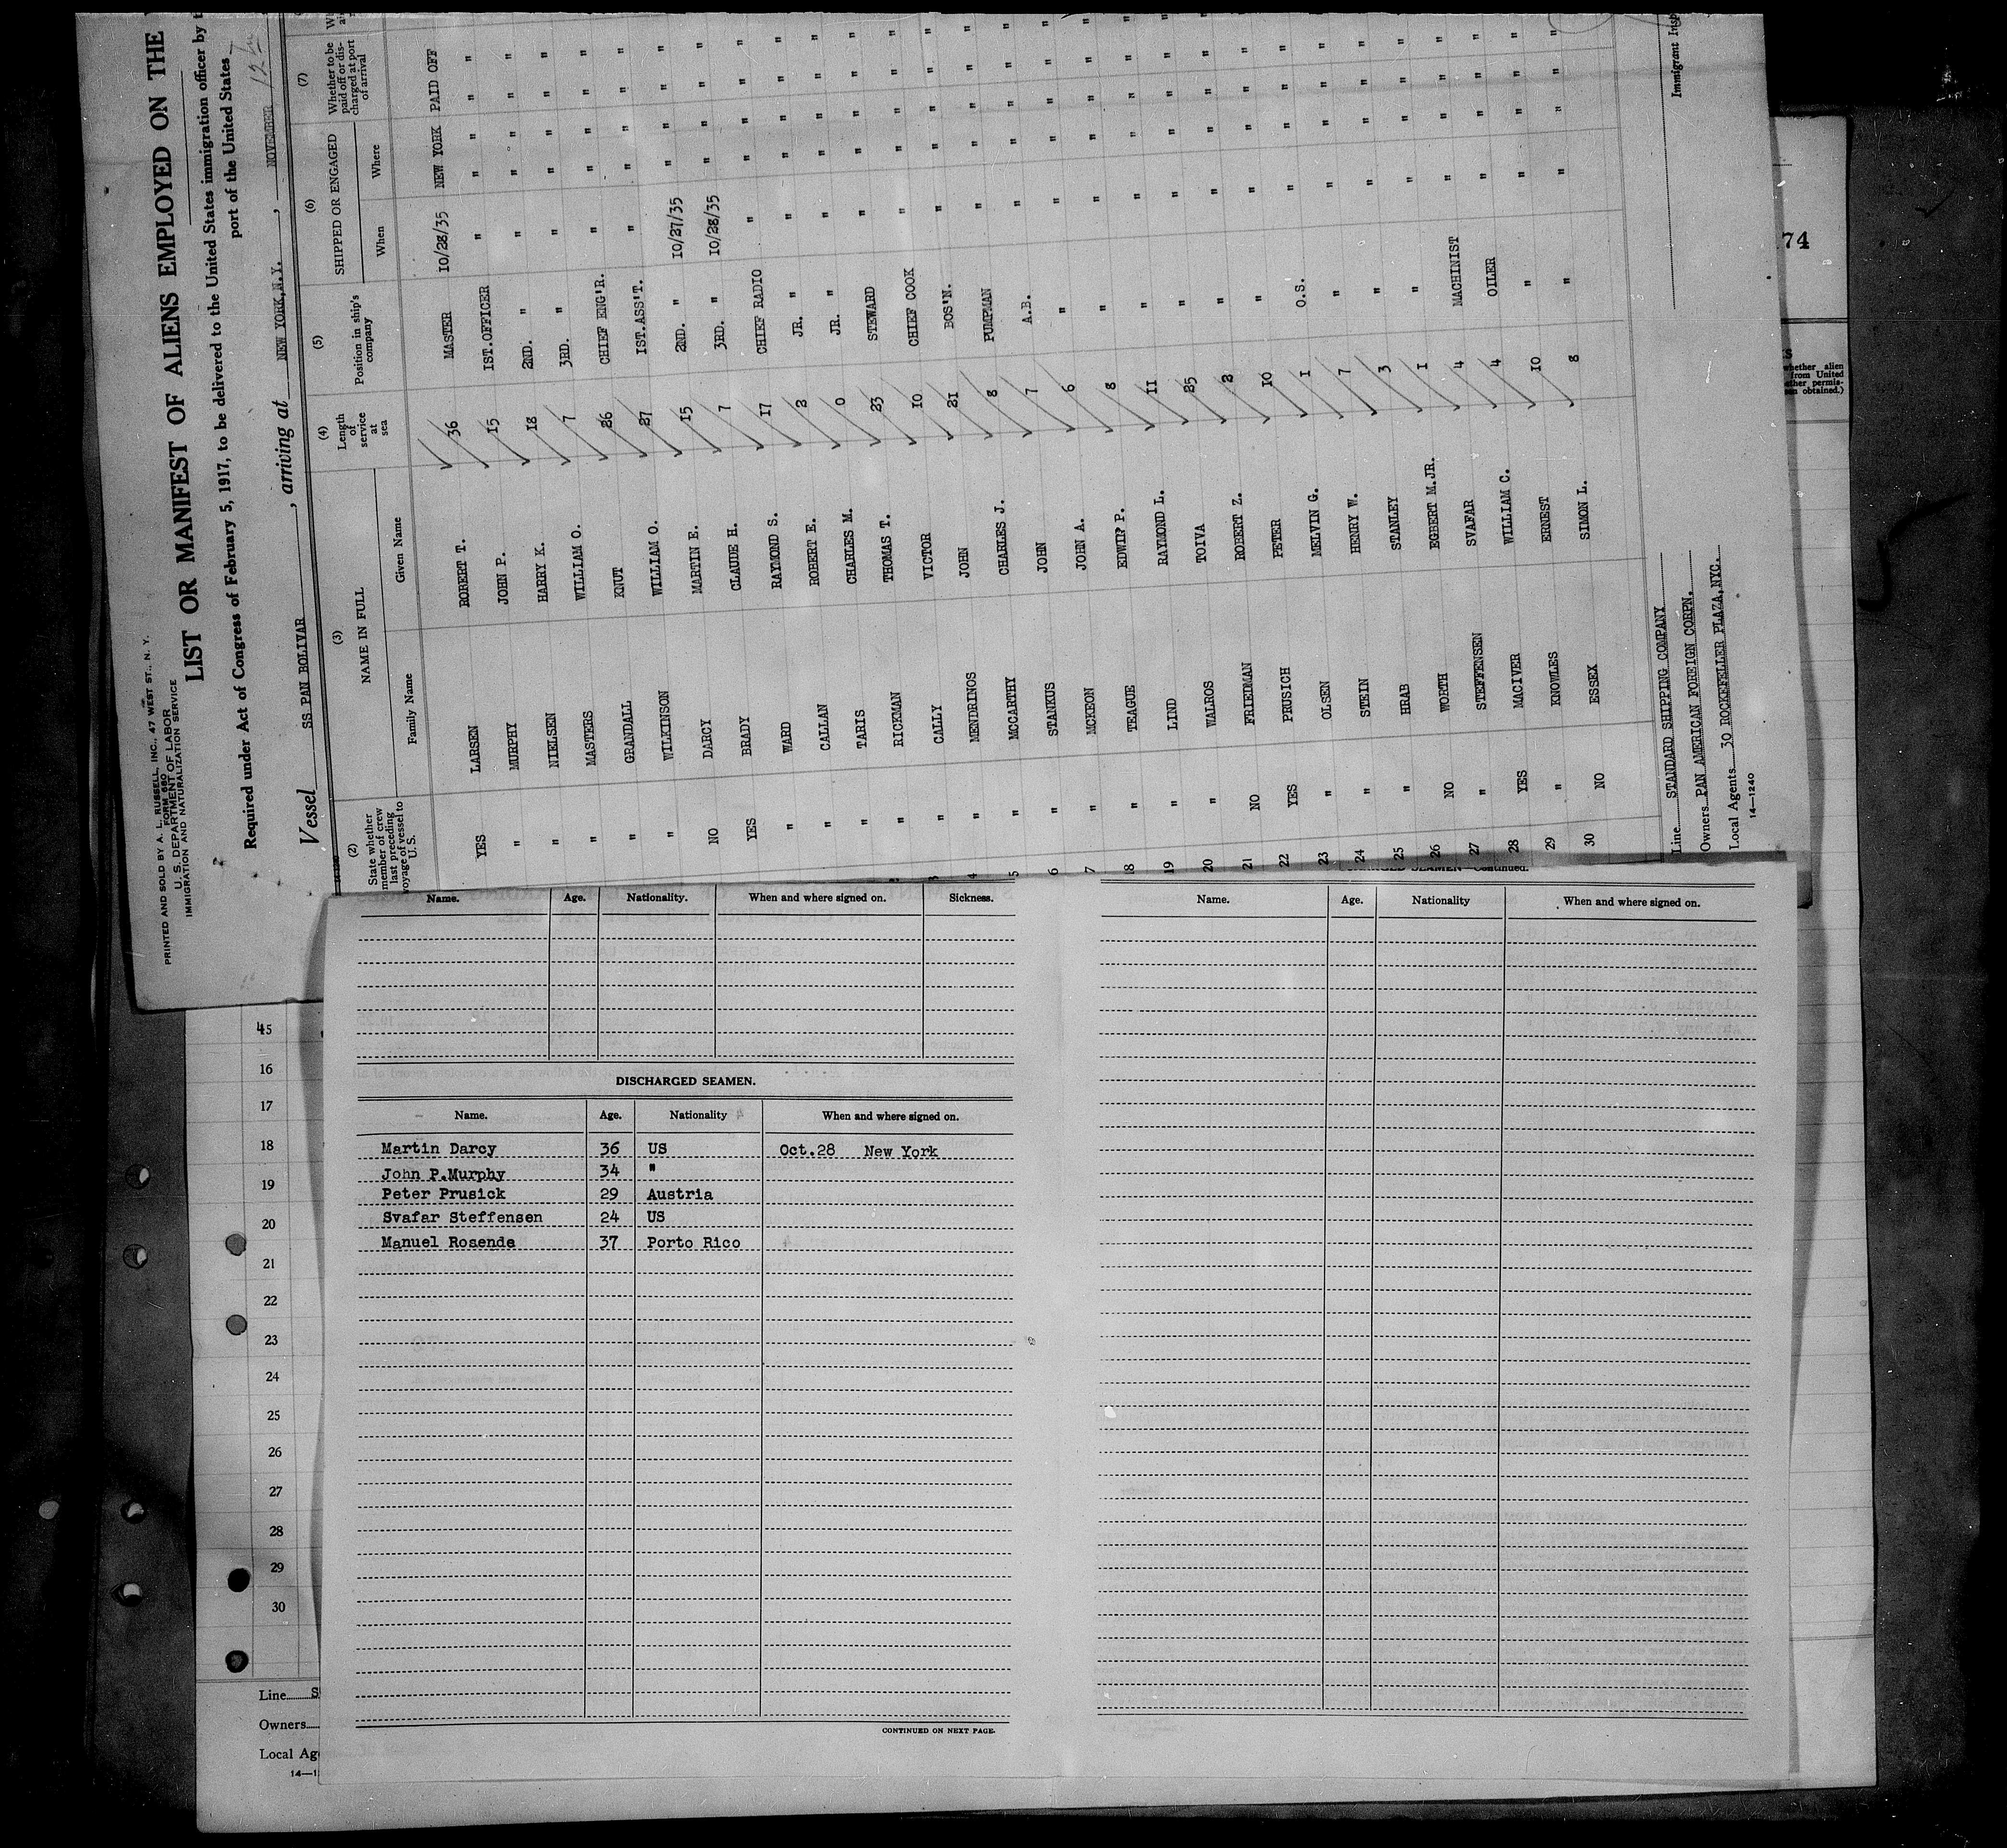 PRINTED AND SOLD BY A. L. RUSSELL, INC., 47 WEST ST., N. Y.
FORM 680
U. S. DEPARTMENT OF LABOR
IMMIGRATION AND NATURALIZATION SERVICE
LIST OR MANIFEST OF ALIENS EMPLOYED ON THE
Required under Act of Congress of February 5, 1917, to be delivered to the United States immigration officer by
port of the United States
Vessel SS PAN BOLIVAR, arriving at NEW YORK,N.Y., NOVEMBER 12
(2) (3) (4) (5) (6) (7)
State whether member of crew last preceding voyage of vessel to U.S. NAME IN FULL Length of service at sea Position in ship's company SHIPPED OR ENGAGED Whether to be paid off or discharged at port of arrival
Family Name Given Name When Where
YES LARSEN ROBERT T. 36 MASTER 10/28/35 NEW YORK PAID OFF
" MURPHY JOHN P. 15 IST.OFFICER " " " "
" NIELSEN HARRY K. 18 2ND. " " " " "
" MASTERS WILLIAM O. 7 3RD. " " " " "
" GRANDALL KNUT 26 CHIEF ENG'R. " " " "
" WILKINSON WILLIAM O. 27 IST.ASS'T. " " " "
NO DARCY MARTIN E. 15 2ND. " 10/27/35 " " "
YES BRADY CLAUDE H. 7 3RD. " 10/28/35 " " "
" WARD RAYMOND S. 17 CHIEF RADIO " " " "
" CALLAN ROBERT E. 2 JR. " " " " "
" TARIS CHARLES M. 0 JR. " " " " "
" RICKMAN THOMAS T. 23 STEWARD " " " "
" CALLY VICTOR 10 CHIEF COOK " " " "
4 " MENDRINOS JOHN 21 BOS'N. " " " "
5 " MCCARTHY CHARLES J. 8 PUMPMAN " " " "
6 " STANKUS JOHN 7 A.B. " " " "
7 " MCKEON JOHN A. 6 " " " " "
18 " TEAGUE EDWIN P. 8 " " " " "
19 " LIND RAYMOND L. 11 " " " " "
20 " WALROS TOIVA 25 " " " " "
21 NO FRIEDMAN ROBERT Z. 2 " " " " "
22 YES PRUSICH PETER 10 " " " " "
23 " OLSEN MELVIN G. 1 O.S. " " " "
24 " STEIN HENRY W. 7 " " " " "
25 " HRAB STANLEY 3 " " " " "
26 NO WORTH EGBERT M.JR. 1 " " " " "
27 " STEFFENSEN SVAFAR 4 MACHINIST " " " "
28 YES MACIVER WILLIAM C. 4 OILER " " " "
29 " KNOWLES ERNEST 10 " " " " "
30 NO ESSEX SIMON L. 8 " " " " "
Line STANDARD SHIPPING COMPANY
Owners PAN AMERICAN FOREIGN CORPN.
Local Agents 30 ROCKEFELLER PLAZA,NYC.
14—1240
Immigrant Insp
74
whether alien
from United
other permis-
obtained.)
Name. Age. Nationality. When and where signed on. Sickness.
DISCHARGED SEAMEN.
Name. Age. Nationality When and where signed on.
Martin Darcy 36 US Oct.28 New York
John P.Murphy 34 "
Peter Prusick 29 Austria
Svafar Steffensen 24 US
Manuel Rosende 37 Porto Rico
CONTINUED ON NEXT PAGE.
SEAMEN—Continued.
Name. Age. Nationality When and where signed on.
15
16
17
18
19
20
21
22
23
24
25
26
27
28
29
30
Line S
Owners
Local Ag
14—1